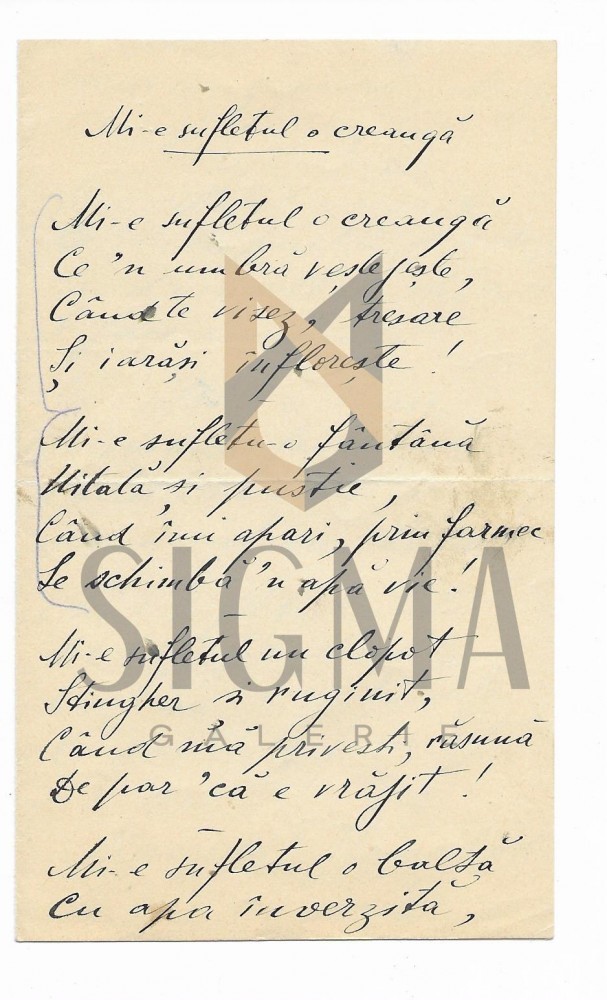 Mi-e sufletul o creangă
Mi-e sufletul o creangă
Ce 'n umbră veștejește,
Când te visez, tresare
Și iarăși înflorește!
Mi-e sufletu-o fântână
Uitată și pustie,
Când îmi apari, prin farmec
Se schimbă 'n apă vie!
Mi-e sufletul un clopot
Stingher si ruginit,
Când mă privesti, răsună
De par 'că e vrăjit!
Mi-e sufletul o baltă
Cu apa înverzită,
SIGMA
GALERIE